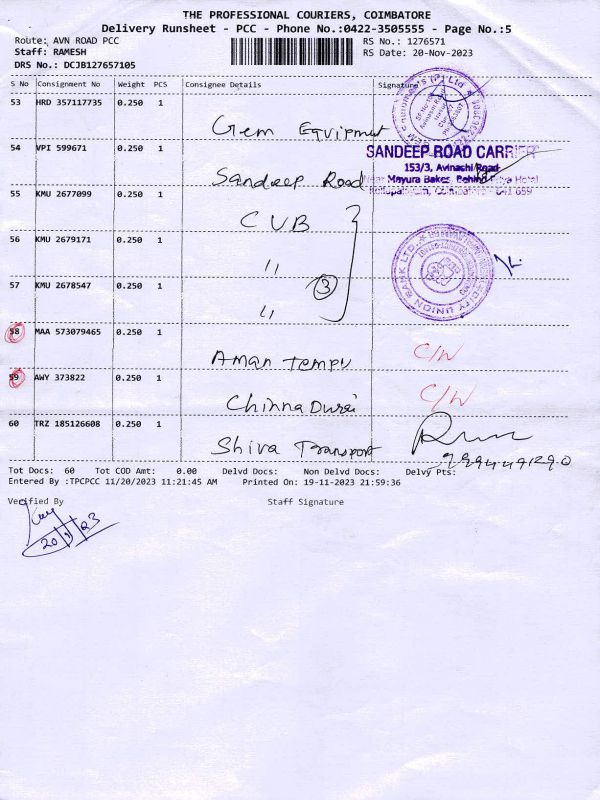 THE PROFESSIONAL COURIERS, COIMBATORE
Delivery Runsheet - PCC - Phone No.:0422-3505555 - Page No.:5
Route: AVN ROAD PCC RS No.: 1276571
Staff: RAMESH RS Date: 20-Nov-2023
DRS No.: DCJB127657105
S No Consignment No Weight PCS Consignee Details Signature
53 HRD 357117735 0.250 1
Gem Equipment
54 VPI 599671 0.250 1
SANDEEP ROAD CARRIER
153/3, Avinashi Road
Near Mayura Bakes, Behind
Sandeep Road
55 KMU 2677099 0.250 1
CUB
56 KMU 2679171 0.250 1
CITY UNION BANK LTD.
"
57 KMU 2678547 0.250 1
3
"
58 MAA 573079465 0.250 1
Aman Tempu C/W
59 AWY 373822 0.250 1
Chinna Durai C/W
60 TRZ 185126608 0.250 1
Shiva Transport
Tot Docs: 60 Tot COD Amt: 0.00 Delvd Docs: Non Delvd Docs: Delvy Pts:
Entered By :TPCPCC 11/20/2023 11:21:45 AM Printed On: 19-11-2023 21:59:36
Verified By Staff Signature
20/11/23